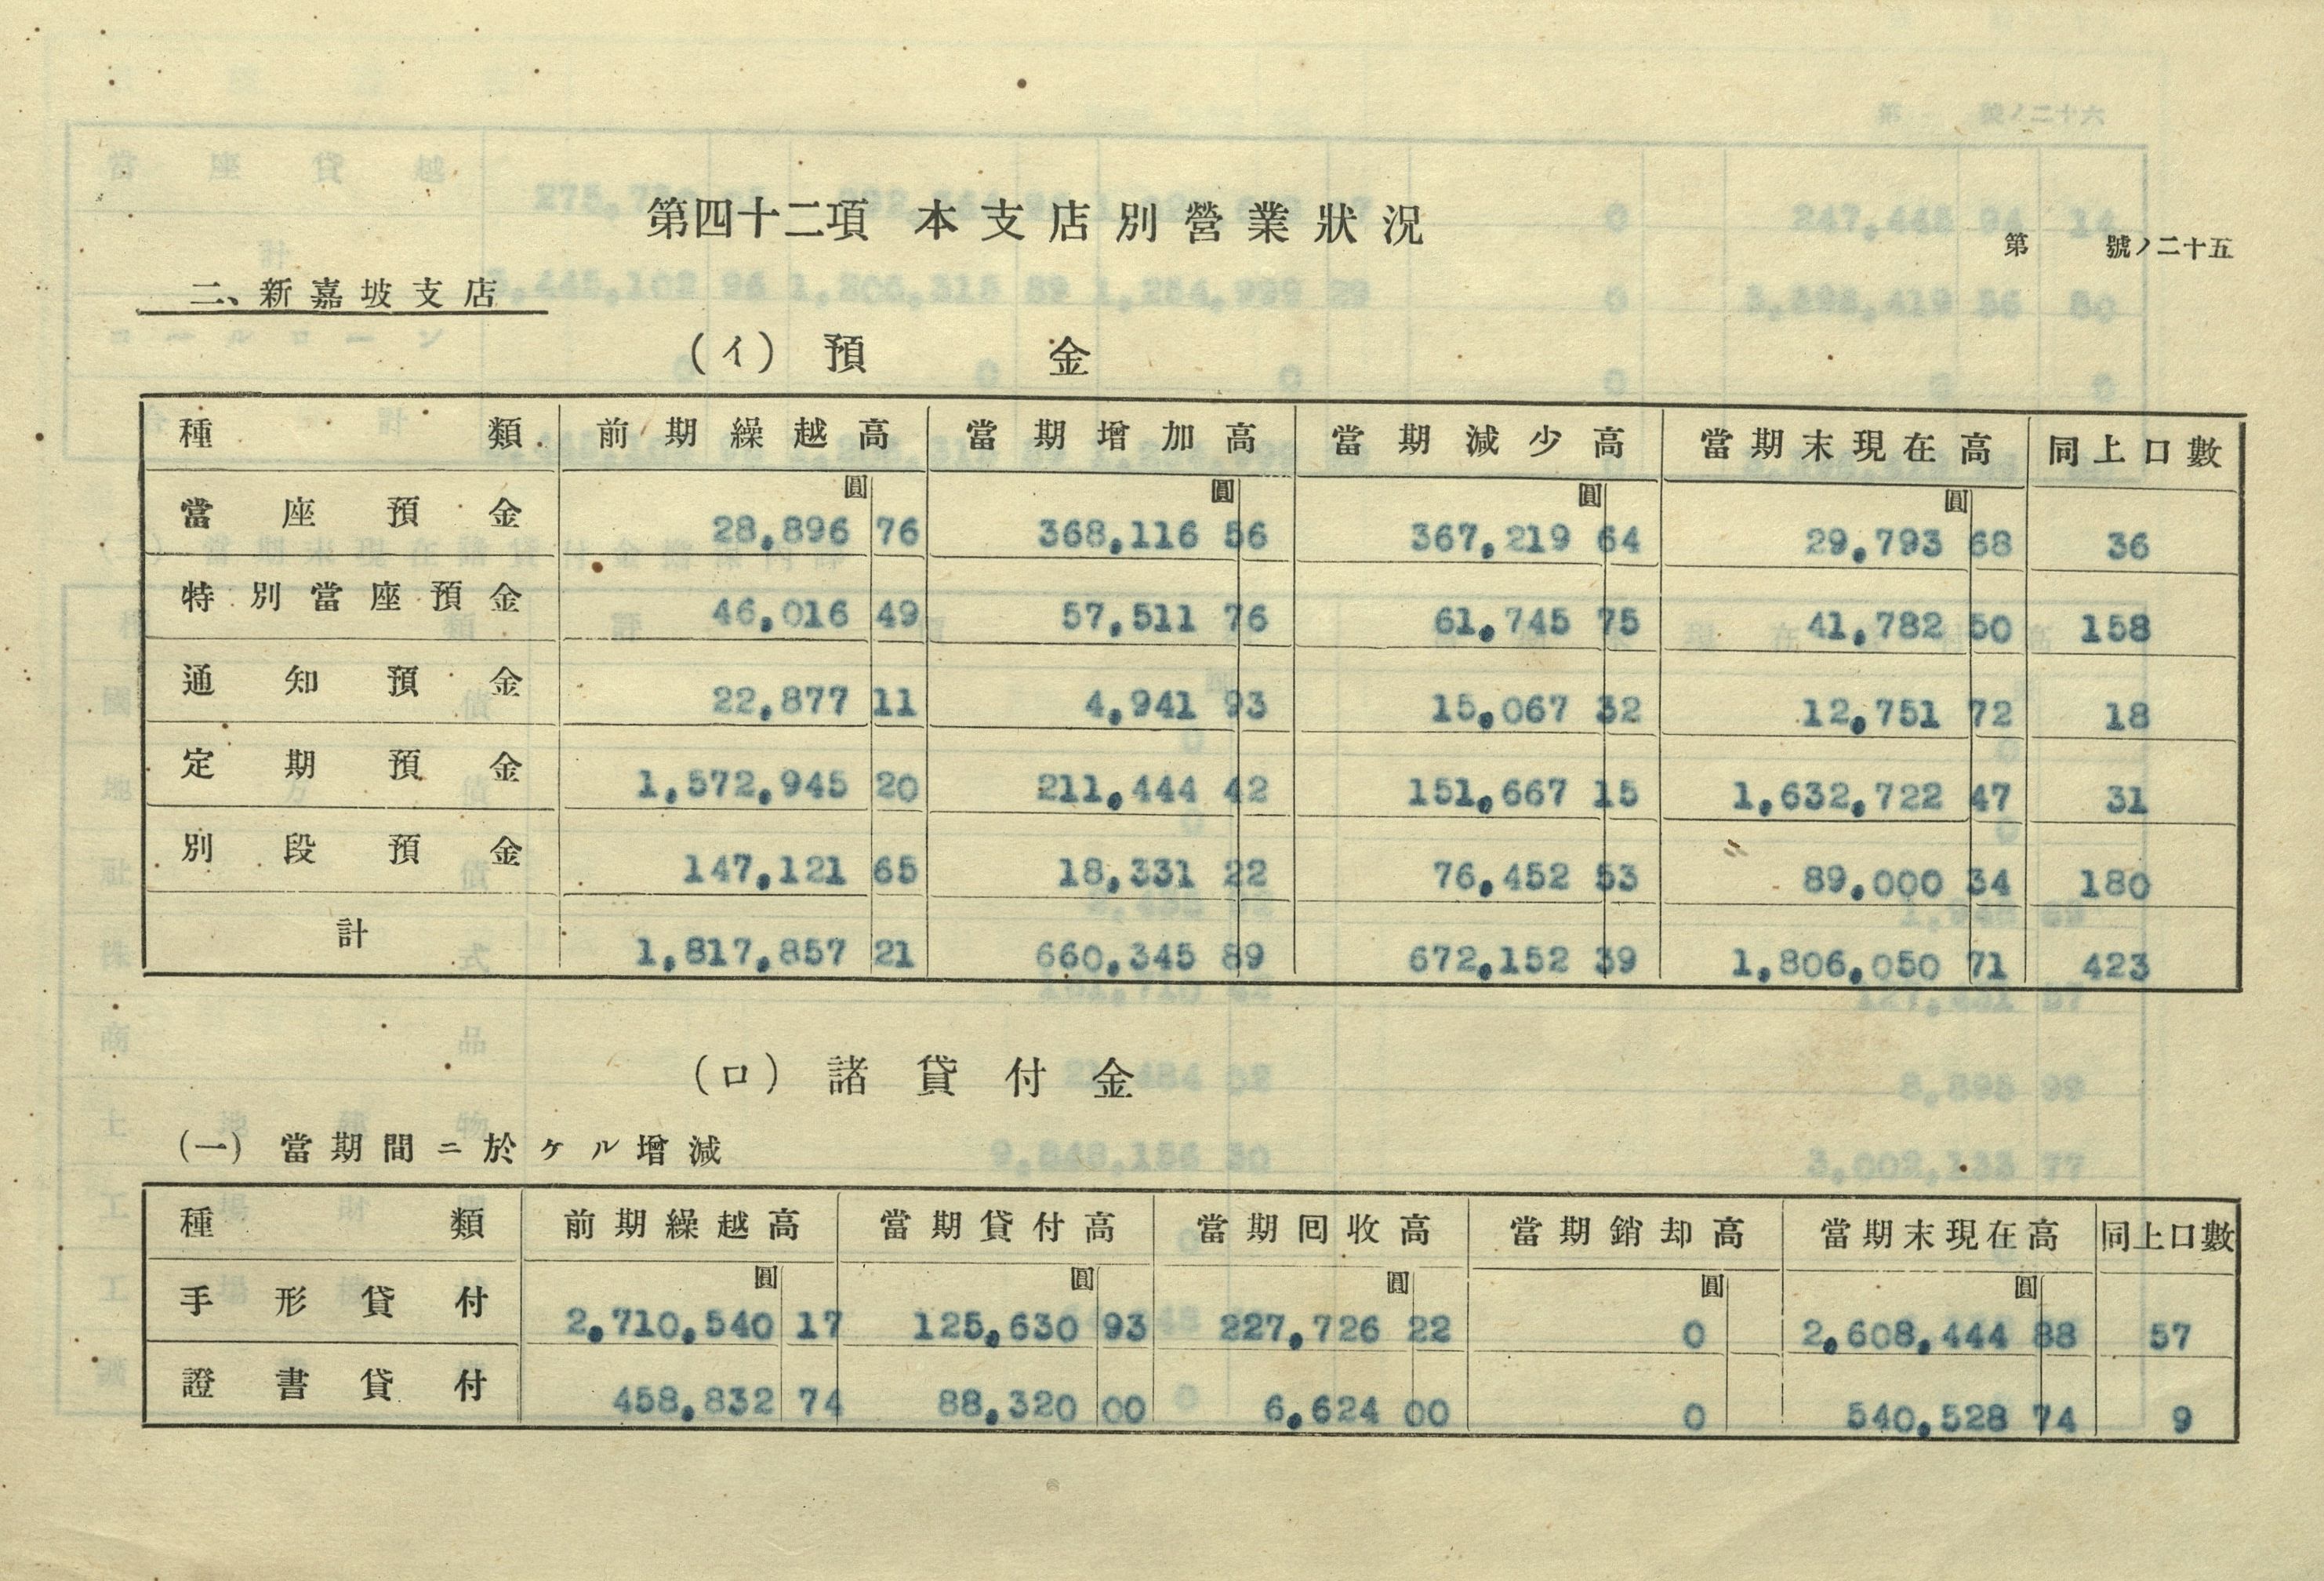 第四十二項 本支店別營業狀況
第 號ノ二十五
二、新嘉坡支店
(イ) 預 金
種類 前期繰越高 當期增加高 當期減少高 當期末現在高 同上口數
圓 圓 圓 圓
當座預金 28,896 76 368,116 56 367,219 64 29,793 68 36
特別當座預金 46,016 49 57,511 76 61,745 75 41,782 50 158
通知預金 22,877 11 4,941 93 15,067 32 12,751 72 18
定期預金 1,572,945 20 211,444 42 151,667 15 1,632,722 47 31
別段預金 147,121 65 18,331 22 76,452 53 89,000 34 180
計 1,817,857 21 660,345 89 672,152 39 1,806,050 71 423
(ロ) 諸貸付金
(一) 當期間ニ於ケル增減
種類 前期繰越高 當期貸付高 當期回收高 當期銷却高 當期末現在高 同上口數
圓 圓 圓 圓 圓
手形貸付 2,710,540 17 125,630 93 227,726 22 0 2,608,444 88 57
證書貸付 458,832 74 88,320 00 6,624 00 0 540,528 74 9